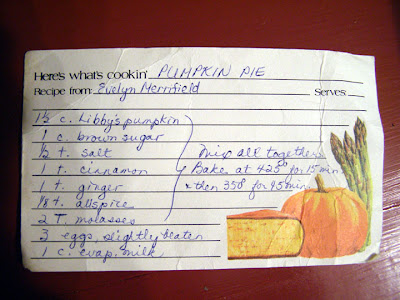 Here's what's cookin' PUMPKIN PIE
Recipe from: Evelyn Merrifield Serves:
1½ c. Libby's pumpkin
1 c. brown sugar
½ t. salt
1 t. cinnamon
1 t. ginger
1/8 t. allspice
2 T. molasses
3 eggs, slightly beaten
1 c. evap. milk
Mix all together
Bake at 425° for 15 min.
& then 350° for 45 min.